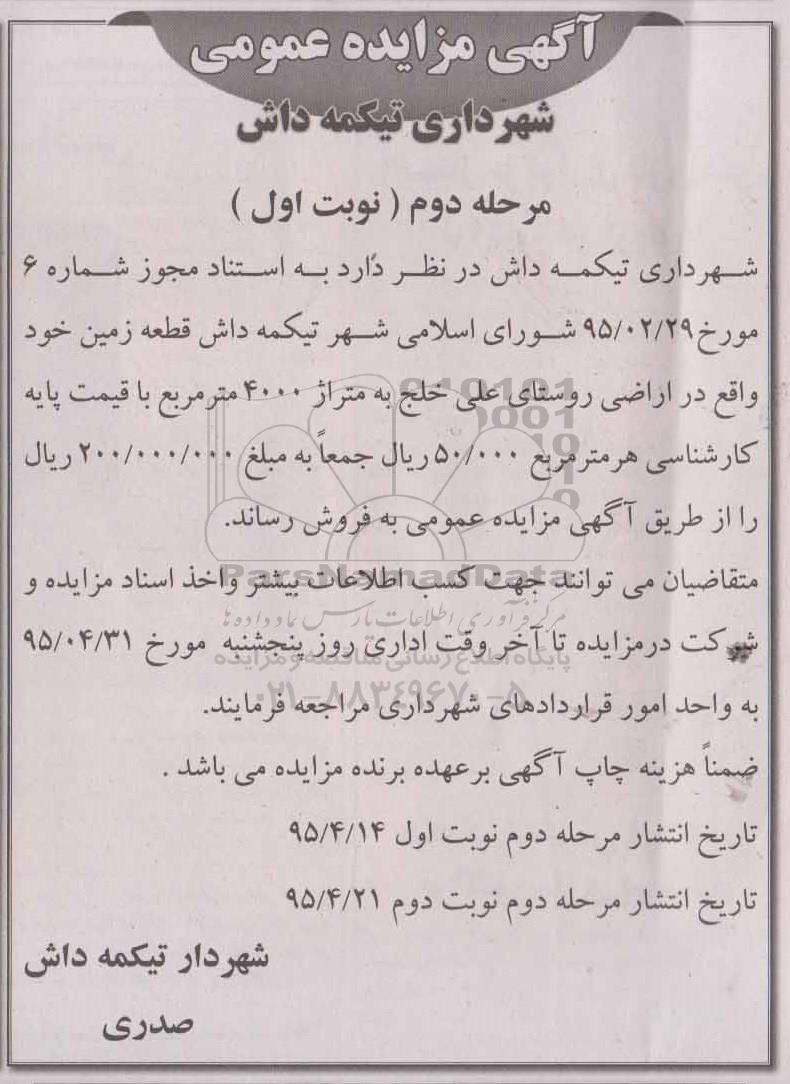 آگهی مزایده عمومی
شهرداری تیکمه داش
مرحله دوم ( نوبت اول )
شهرداری تیکمه داش در نظر دارد به استناد مجوز شماره ۶
مورخ ۹۵/۰۲/۲۹ شورای اسلامی شهر تیکمه داش قطعه زمین خود
واقع در اراضی روستای علی خلج به متراژ ۴۰۰۰ مترمربع با قیمت پایه
کارشناسی هرمترمربع ۵۰/۰۰۰ ریال جمعاً به مبلغ ۲۰۰/۰۰۰/۰۰۰ ریال
را از طریق آگهی مزایده عمومی به فروش رساند.
ParsNamadData
متقاضیان می توانند جهت کسب اطلاعات بیشتر واخذ اسناد مزایده و
مرکز فرآوری اطلاعات پارس نماد داده ها
شرکت درمزایده تا آخر وقت اداری روز پنجشنبه مورخ ۹۵/۰۴/۳۱
پایگاه اطلاع رسانی مناقصه و مزایده
۰۲۱-۸۸۳۴۹۶۷۰-۵
به واحد امور قراردادهای شهرداری مراجعه فرمایند.
ضمناً هزینه چاپ آگهی برعهده برنده مزایده می باشد .
تاریخ انتشار مرحله دوم نوبت اول ۹۵/۴/۱۴
تاریخ انتشار مرحله دوم نوبت دوم ۹۵/۴/۲۱
شهردار تیکمه داش
صدری